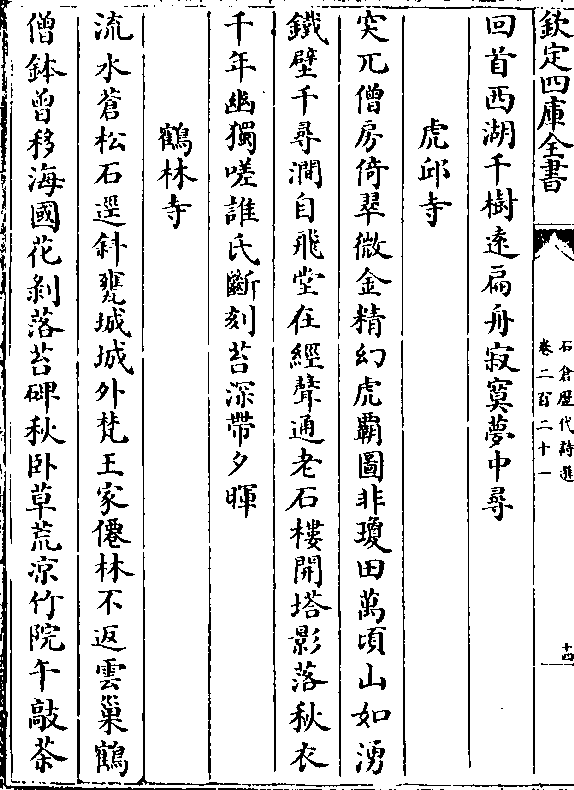 欽定四庫全書
石倉歷代詩選
卷二百二十一
十四
回首西湖千樹遠扁舟寂寞夢中尋
虎邱寺
突兀僧房倚翠微金精幻虎覇圖非瓊田萬頃山如湧
鐵壁千尋澗自飛堂在經聲通老石樓開塔影落秋衣
千年幽獨嗟誰氏斷刻苔深帶夕暉
鶴林寺
流水蒼松石逕斜甕城城外梵王家僊林不返雲巢鶴
僧鉢曾移海國花剝落苔碑秋卧草荒凉竹院午敲茶